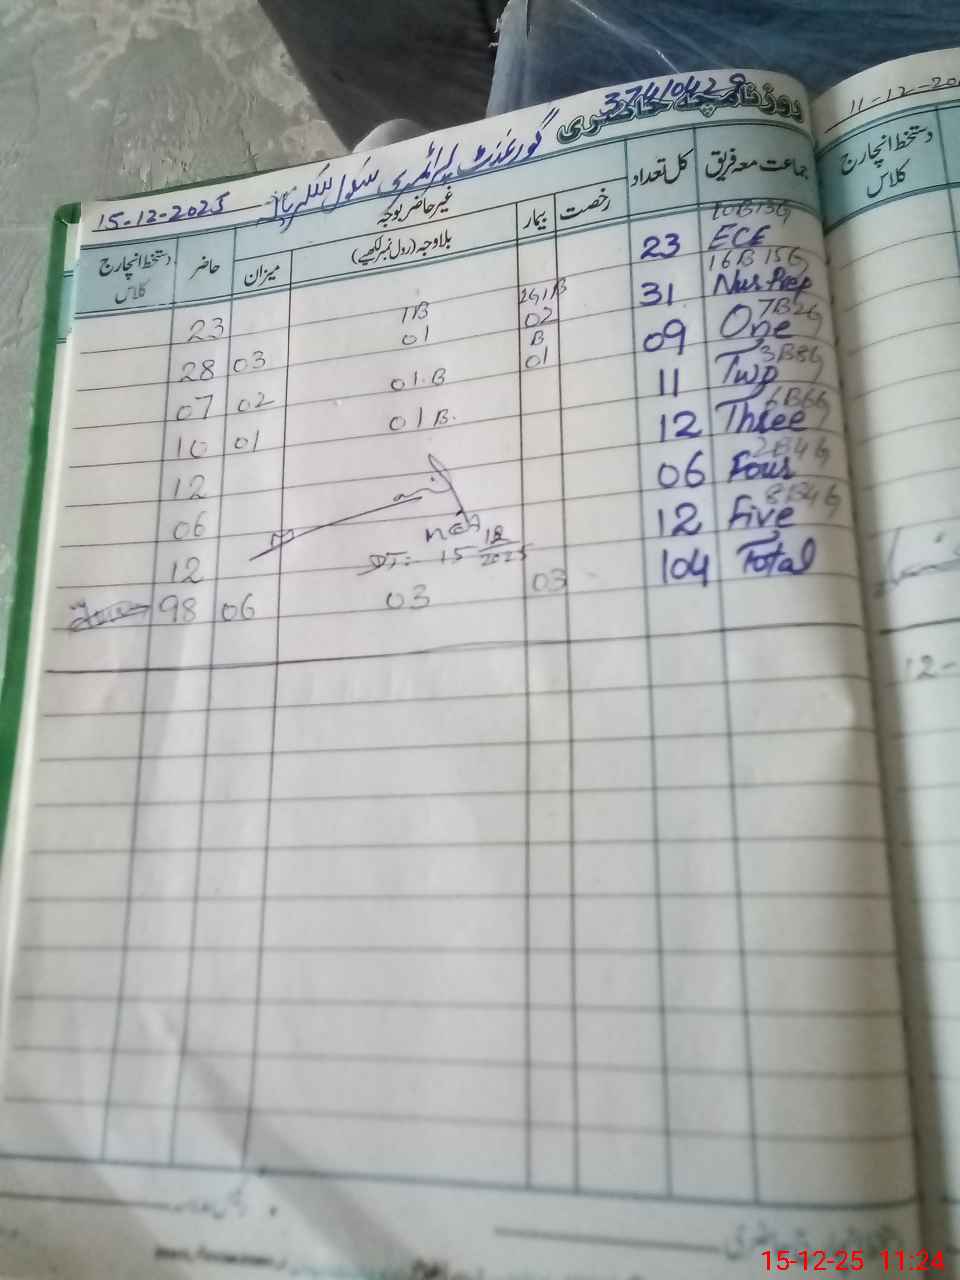 روزنامچہ حاضری 37410428
گورنمنٹ پرائمری سکول 15-12-2025
جماعت معہ فریق کل تعداد غیر حاضر بوجہ حاضر دستخط انچارج کلاس
رخصت بیمار بلاوجہ (رول نمبر لکھیے) میزان
10B13G
ECE 23 23
16B 15G
Nur.Prep 31 2G,1B 02 1B 01 03 28
7B2G
One 09 B 01 01.B 02 07
3B8G
Two 11 01B. 01 10
6B6G
Three 12 12
2B4G
Four 06 06
8B4G
Five 12 12
Total 104 03 03 06 98
DT:- 15 12 2025
11-12-20
دستخط انچارج کلاس
12-
15-12-25 11:24